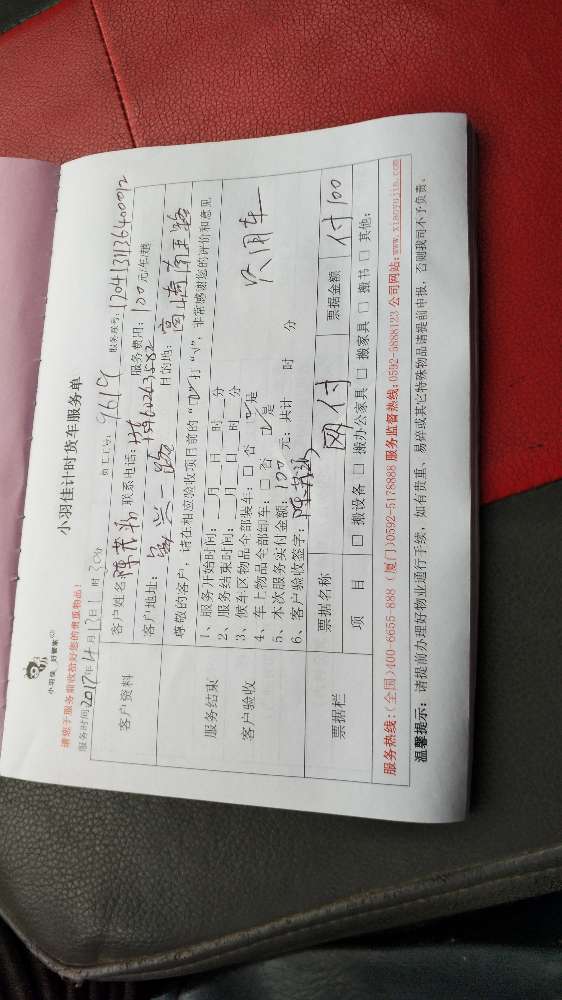 小羽佳 好管家
小羽佳计时货车服务单
请您于服务前收拾好您的贵重物品！
服务时间2017年4月13日1时30分 员工号：9619 服务账号：1204131136400012
客户资料
客户姓名 联系电话： 服务费用：100元/车/趟
客户地址：嘉兴一路 目的地：
尊敬的客户，请在相应验收项目前的“ ”打“√”，非常感谢您的评价和意见
服务结束
客户验收
1、服务开始时间：__月__日__时__分
2、服务结束时间：__月__日__时__分
3、候车区物品全部装车：□ 否 ☑ 是
4、车上物品全部卸车：□ 否 ☑ 是
5、本次服务实付金额：100元；共计 时 分
6、客户验收签字：
次用车
票据栏
票据名称 网付 票据金额 付100
项 目 □ 搬设备 □ 搬办公家具 □ 搬家具 □ 搬书 □ 其他：
服务热线：(全国)400-6655-888 (厦门)0592-5178888 服务监督热线：0592-5888123 公司网站：www.xiaoyujia.com
温馨提示：请提前办理好物业通行手续，如有贵重、易碎或其它特殊物品请提前申报，否则我司不予负责。